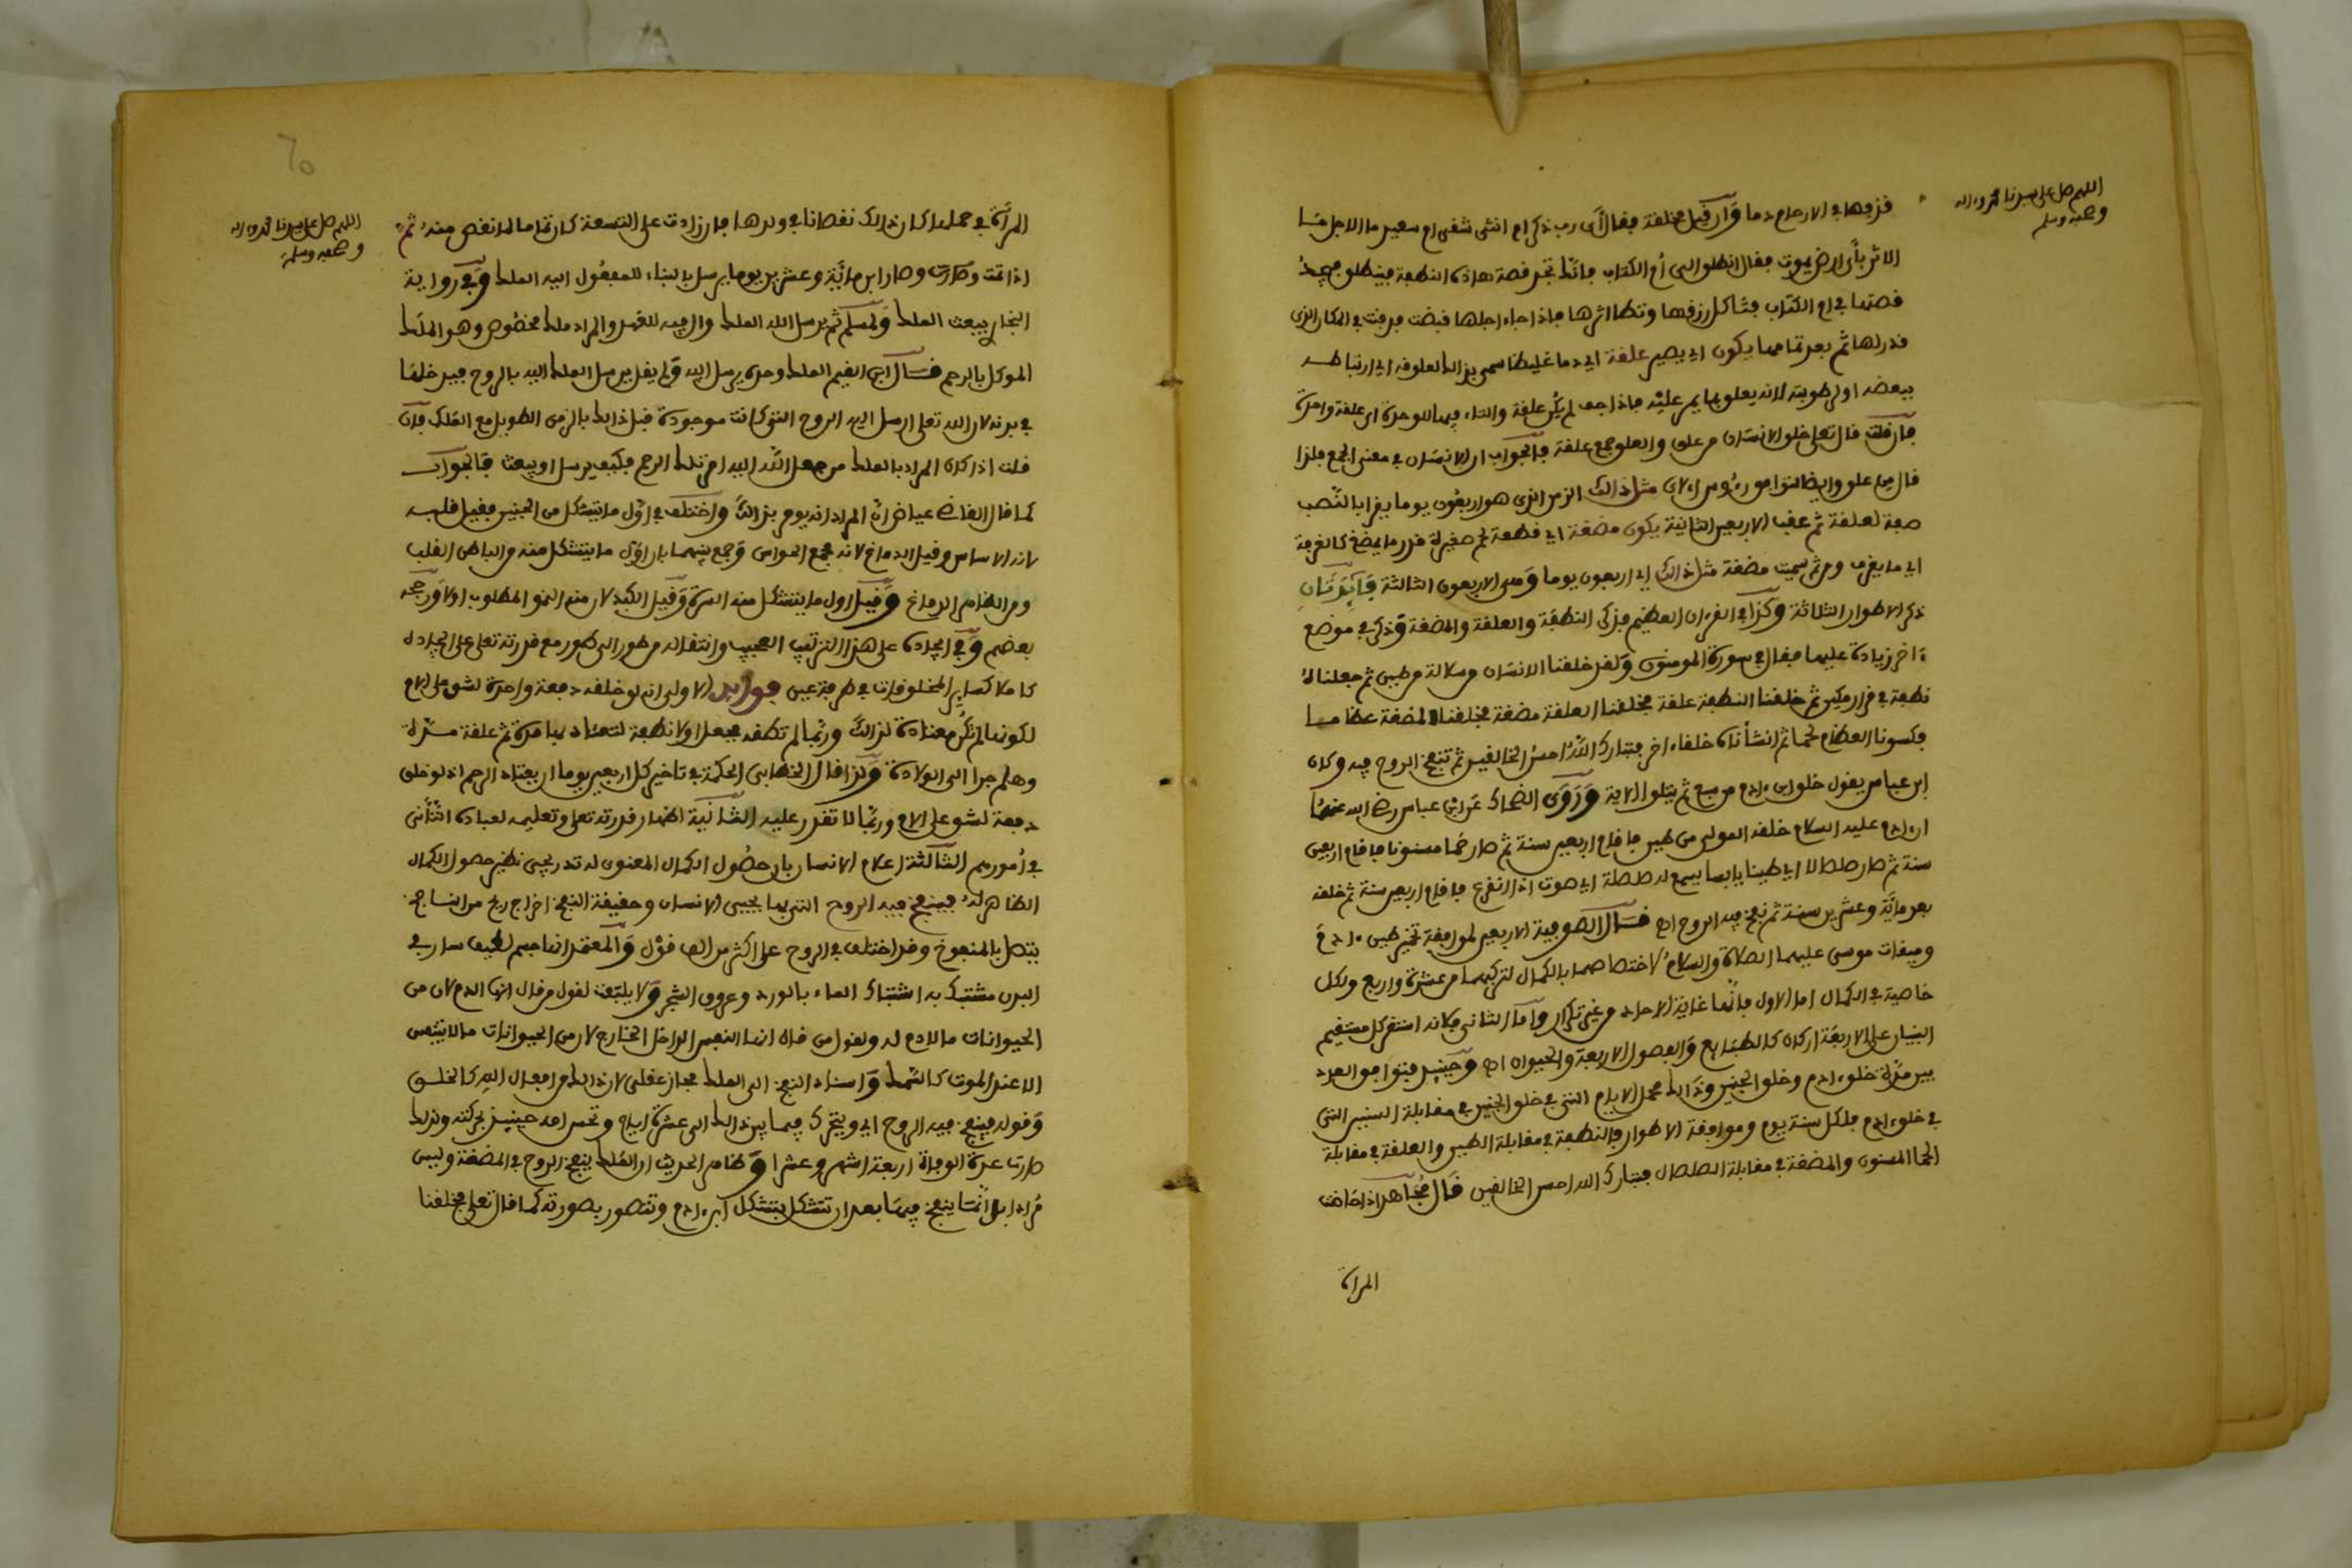 اللهم صل على سيدنا محمد وءاله
وصحبه وسلم
قذفها في الارحام دما وان قيل مخلقة فقال اي رب ذكر ام انثى شقي ام سعيد ما الاجل ما
الاثر باي ارض يموت فيقال انطلق الى أم الكتاب فانك تجد قصة هاذه النطفة فينطلق فيجد
قصتها في ام الكتاب فتاكل رزقها وتطا اثرها فاذا جاء اجلها قبضت فدفنت في المكان الذي
قدر لها ثم بعد تمامها يكون اي يصير علقة اي دما غليظا سمي بذالك لعلوقه اي ارتباطه
ببعضه او لرطوبته لانه يعلق بما يمر عليه فاذا جف لم يكن علقة والتاء فيها للوحدة اي علقة واحدة
فان قلت قال تعلى خلق الانسان من علق والعلق جمع علقة فالجواب ان الانسان في معنى الجمع فلذا
قال من علق وايضا لتوافق رءوس الاي مثل ذالك الزمن الذي هو اربعون يوما يقرا بالنصب
صفة لعلقة ثم عقب الاربعين الثانية يكون مضغة اي قطعة لحم صغيرة قدر ما يمضغ كالغرفة
اي ما يغرف ومن ثم سميت مضغة مثل ذالك اي اربعون يوما وهي الاربعون الثالثة فايدتان
ذكر الاطوار الثلاثة وكذا في القرءان العظيم فذكر النطفة والعلقة والمضغة وذكر في موضع
ءاخر زيادة عليها فقال في سورة المومنون ولقد خلقنا الانسان من سلالة من طين ثم جعلناه
نطفة في قرار مكين ثم خلقنا النطفة علقة فخلقنا العلقة مضغة فخلقنا المضغة عظاما
فكسونا العظام لحما ثم انشأناه خلقا ءاخر فتبارك الله احسن الخالقين ثم تنفخ الروح فيه وكان
ابن عباس يقول خلق ابن ءادم من سبع ثم يتلو الاية وروى الضحاك عن ابن عباس رضي الله عنهما
ان ءادم عليه السلام خلقه المولى من طين فاقام اربعين سنة ثم صار حما مسنونا فاقام اربعين
سنة ثم صار صلصالا اي طينا يابسا يسمع له صلصلة اي صوت اذا انقرع فاقام اربعين سنة ثم خلقه
بعد ماية وعشرين سنة ثم نفخ فيه الروح اه قال الصوفية الاربعين لموافقة تخمير طين ءادم
وميقات موسى عليهما الصلاة والسلام لاختصاصهما بالكمال لتركيبهما من عشرة واربع ولكل
خاصية في الكمال اما الاول فانها غاية الاحاد من غير تكرار واما الثاني فكانه استقر كل مستقيم
البنيان على الاربعة اركان كالطبايع والفصول الاربعة والحيوان اه وحينيذ فتوافق العدد
بين مدة خلق ءادم وخلق الجنين وذالك محمل الايام التي في خلق الجنين في مقابلة السنين التي
في خلق ءادم فلكل سنة يوم وموافقة الاطوار فالنطفة في مقابلة الطين والعلقة في مقابلة
الحما المسنون والمضغة في مقابلة الصلصال فتبارك الله احسن الخالقين قال مجاهد اذا حاضت
المراة
٦٥
اللهم صل على سيدنا محمد وءاله
وصحبه وسلم
المرأة في حملها كان ذالك نقصانا في ولدها فان زادت على التسعة كان تماما لما نقص منه ثم
اذا تمت وصار ابن ماية وعشرين يوما يرسل بالبناء للمفعول اليه الملك وفي رواية
البخاري يبعث الملك ولمسلم ثم يرسل الله الملك وال فيه للعهد والمراد ملك مخصوص وهو الملك
الموكل بالرحم قال ابن القيم الملك وحده يرسل اليه ولم يقل يرسل الملك اليه بالروح فيدخلها
في بدنه لان الله تعلى ارسل اليه الروح التي كانت موجودة قبل ذالك بالزمن الطويل مع الملك فان
قلت اذا كان المراد بالملك من جعل الله اليه امر تلك الرحم فكيف يرسل او يبعث فالجواب
كما قال القاضي عياض ان المراد انه يومر بذالك واختلف في اول ما يتشكل من الجنين فقيل قلبه
لانه الاساس وقيل الدماغ لانه مجمع الحواس وجمع بينهما بان اول ما يتشكل منه من الباطن القلب
ومن الظاهر الدماغ وقيل اول ما يتشكل منه السرة وقيل الكبد لان منه النمو المطلوب اولا ورجحه
بعضهم وفي ايجاده على هذا الترتيب العجيب وانتقاله من طور الى طور مع قدرته تعلى على ايجاده
كاملا كساير المخلوقات في طرفة عين فوايد الاولى انه لو خلقه دفعة واحدة لشق على الام
لكونها لم تكن معتادة لذالك وربما لم تطقه فجعل اولا نطفة لتعتاد بها مدة ثم علقة مدة
وهلم جرا الى الولادة ولذا قال الخطابي الحكمة في تاخير كل اربعين يوما ان يعتاد الرحم اذ لو خلق
دفعة لشق على الام وربما لا تقدر عليه الثانية اظهار قدرته تعلى وتعليمه لعباده التأني
في أمورهم الثالثة اعلام الانسان بان حصول الكمال المعنوي له تدريجي نظير حصول الكمال
الظاهر له فينفخ فيه الروح التي بها يحيى الانسان وحقيقة النفخ اخراج ريح من النافخ
يتصل بالمنفوخ وقد اختلف في الروح على اكثر من الف قول والمعتمد انها جسم لطيف سار في
البدن مشتبك به اشتباك الماء بالورد وعروق الشجر ولا يلتفت لقول من قال انها الدم لان من
الحيوانات مالا دم له ولقول من قال انها النفس الداخل الخارج لان من الحيوانات ما لا يتنفس
الا عند الموت كالسمك واسناد النفخ الى الملك مجاز عقلي لان ذالك من افعال الله كالخلق
وقوله فينفخ فيه الروح اي ويتحرك فيما بين ذالك الى عشرة ايام وتحس امه حينيذ بحركته ولذلك
صارت عدة الوفاة اربعة اشهر وعشرا وظاهر الحديث ان الملك ينفخ الروح في المضغة وليس
مرادا بل انما ينفخ فيها بعد ان تتشكل بتشكل ابن ءادم وتتصور بصورته كما قال تعلى فخلقنا